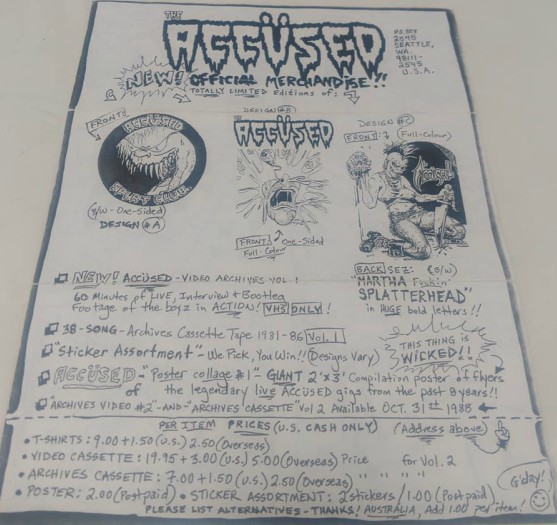 THE
ACCÜSED
P.O. BOX
2545
SEATTLE,
WA.
98111-
2545
U.S.A.
NEW! OFFICIAL MERCHANDISE!!
TOTALLY LIMITED Editions of:
FRONT:
ACCÜSED
(B/W - One-Sided)
DESIGN #A
DESIGN #B
ACCÜSED
FRONT One-Sided
Full-Colour
DESIGN #C
FRONT: (Full-Colour)
BACK SEZ: (B/W)
"MARTHA
SPLATTERHEAD"
in HUGE bold letters!!
NEW! ACCÜSED - VIDEO ARCHIVES VOL 1
60 Minutes of LIVE, Interview & Bootleg
Footage of the boyz in ACTION! VHS ONLY!
38-SONG - Archives Cassette Tape 1981-86 Vol. 1
"Sticker Assortment" - We Pick, You Win!! (Designs Vary)
THIS THING IS
WICKED!!
ACCÜSED - "Poster collage #1" - GIANT 2'x3' Compilation poster of flyers
of the legendary live ACCÜSED gigs from the past 8 years!!
"ARCHIVES VIDEO #2" - AND - "ARCHIVES CASSETTE" Vol 2 Available OCT. 31st 1988
PER ITEM PRICES (U.S. CASH ONLY) (Address above)
• T-SHIRTS: 9.00 + 1.50 (U.S.) 2.50 (Overseas)
• VIDEO CASSETTE: 19.95 + 3.00 (U.S.) 5.00 (Overseas) Price for Vol. 2
• ARCHIVES CASSETTE: 7.00 + 1.50 (U.S.) 2.50 (Overseas) " " " "
• POSTER: 2.00 (Postpaid) • STICKER ASSORTMENT: 2 stickers/1.00 (Postpaid)
G'day!
PLEASE LIST ALTERNATIVES - THANKS! AUSTRALIA, Add 1.00 per item!